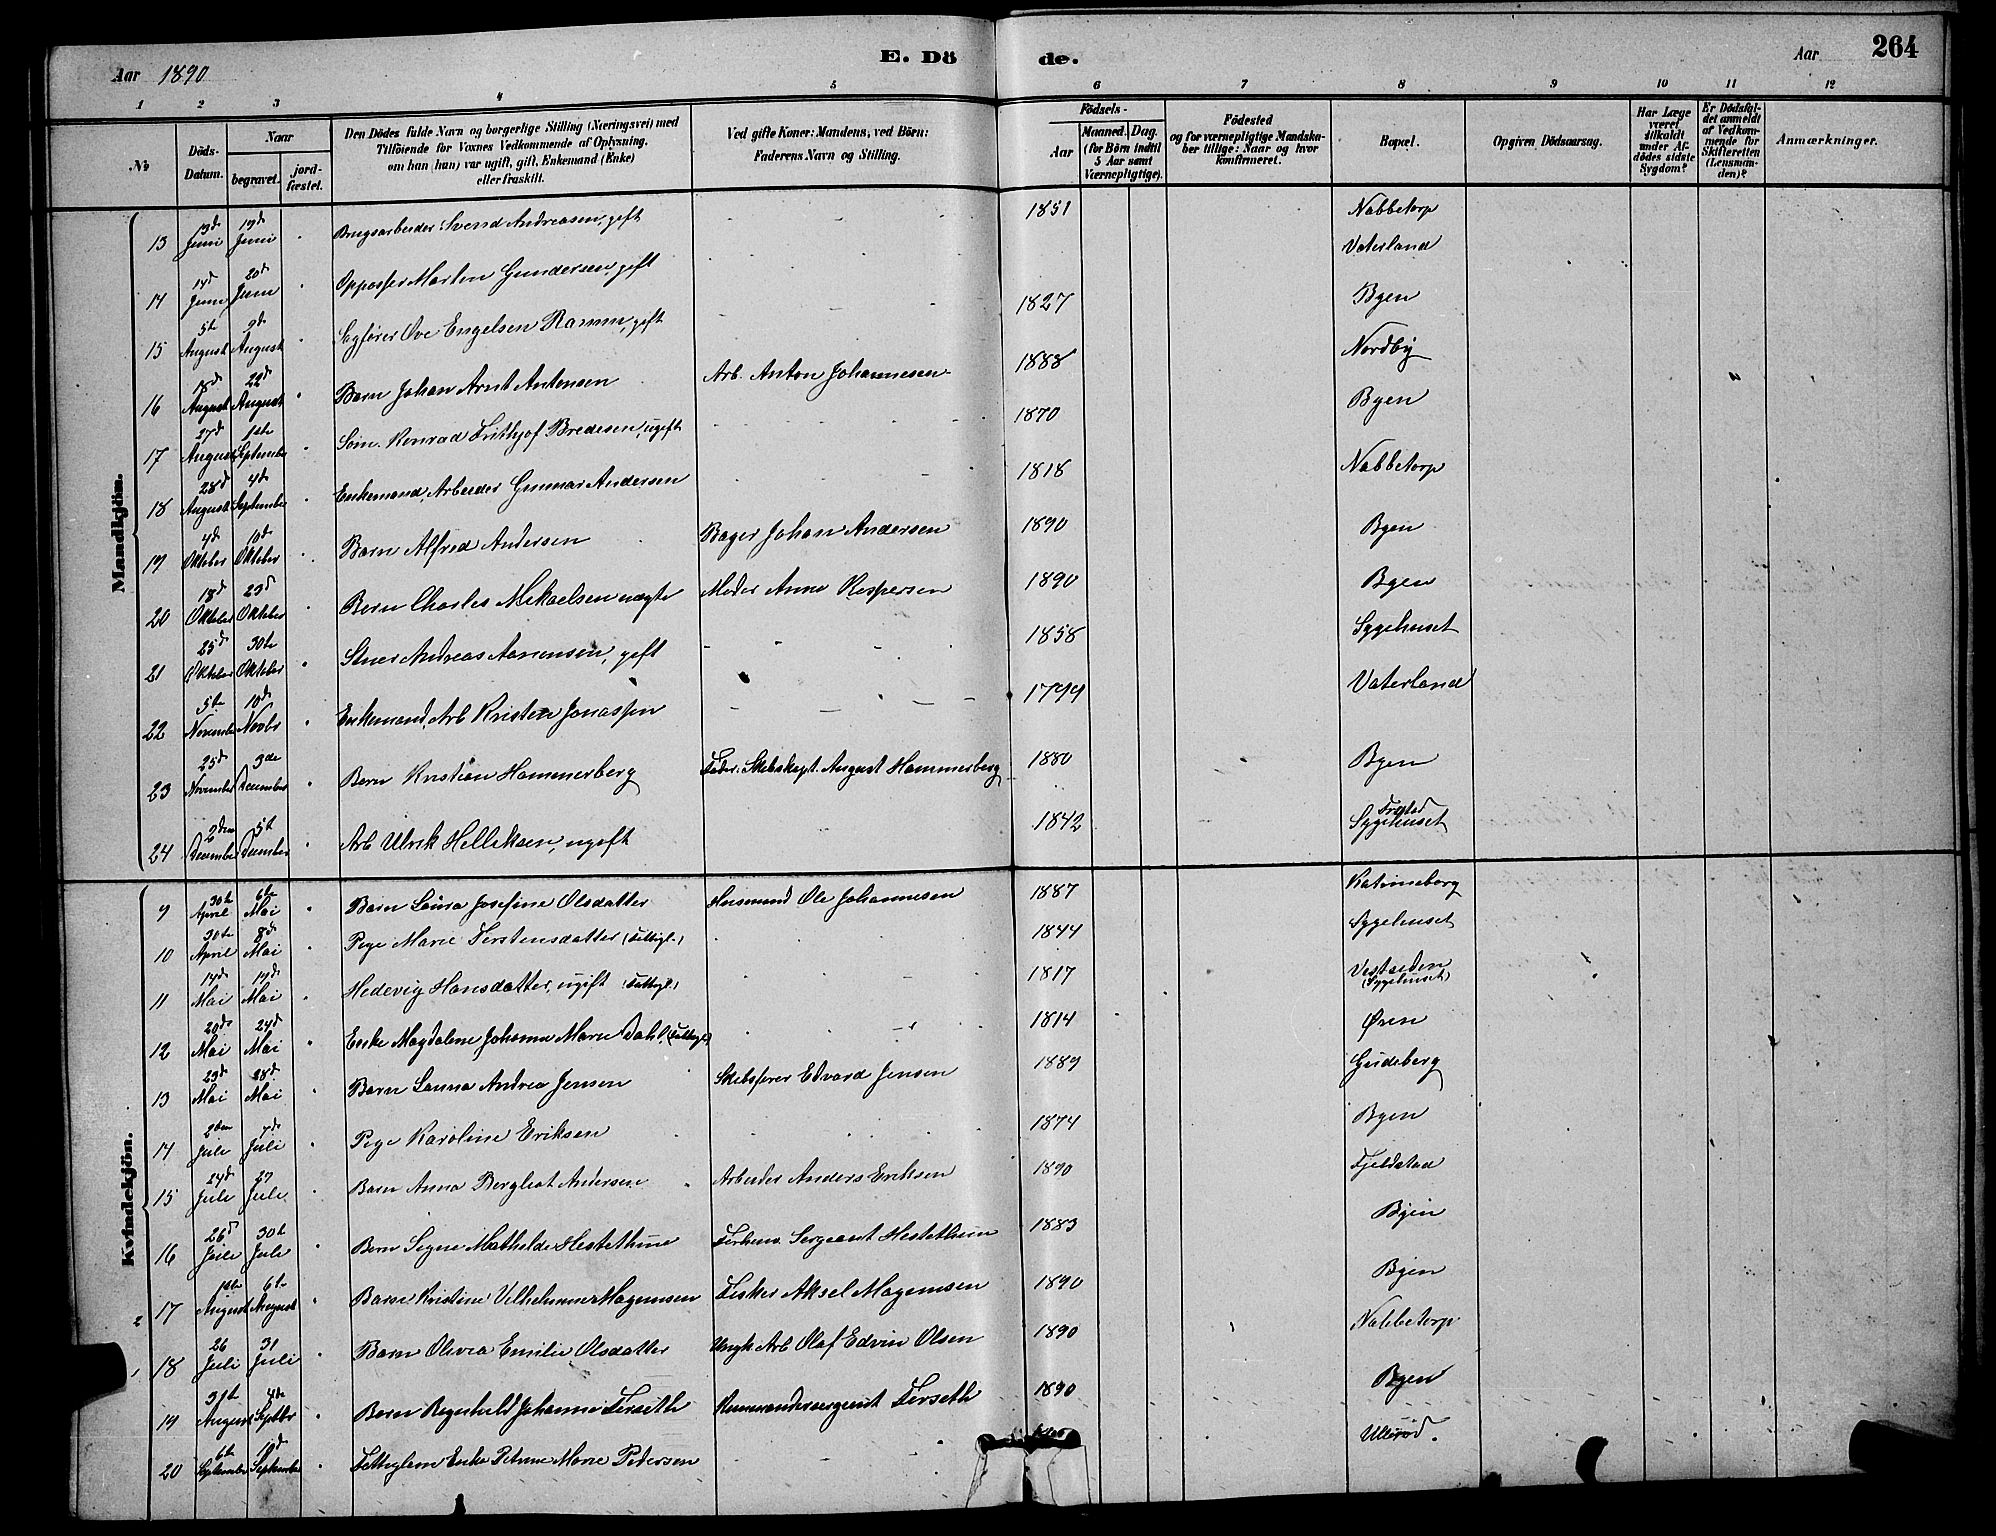 Aar 1890 E. Dö de. Aar 264
1 2 3 4 5 6 7 8 9 10 11 12
No
Döds-Datum.
Naar
begravet.
jord-fæstet.
Den Dödes fulde Navn og borgerlige Stilling (Næringsvei) med
Tilföiende for Voxnes Vedkommende af Oplysning,
om han (hun) var ugift, gift, Enkemand (Enke)
eller fraskilt.
Ved gifte Koner: Mandens; ved Börn:
Faderens Navn og Stilling.
Födsels-
Aar
Maaned. Dag.
(for Börn indtil
5 Aar samt
Værnepligtige).
Födested
og for værnepligtige Mandska-
ber tillige: Naar og hvor
konfirmeret.
Bopæl.
Opgiven Dödsaarsag.
Har Læge
været
tilkaldt
under Af-
dödes sidste
Sygdom?
Er Dödsfal-
det anmeldt
af Vedkom-
mende for
Skifteretten
(Lensman-
den)?
Anmærkninger.
Mandkjön.
13 13d Juni 19d Juni Brugsarbeider Svend Andreasen, gift 1851 Nabbetorp
14 14d Juni 20d Juni Martin Gundersen, gift Vaterland
15 5te August 9d August Sagfører Ove Engelsen Ramm, gift 1827 Byen
16 18d August 22d August Barn Johan Arnt Antonsen Arb. Anton Johannesen 1888 Nordby
17 27d August 1ste September Konrad Frithjof Bredesen, ugift 1870 Byen
18 28d August 4d September Enkemand, Arbeider Gunnar Andersen 1818 Nabbetorp
19 4d Oktober 10d Oktober Barn Alfred Andersen Bager Johan Andersen 1890 Byen
20 18d Oktober 23d Oktober Barn Charles Mikaelsen uægte Moder Anne Kaspersen 1890 Byen
21 25d Oktober 30te Oktober Andreas gift 1858 Sygehuset
22 5te November 10d Novbr Enkemand, Arb Kristen Jonassen 1799 Vaterland
23 25d November 3die December Barn Kristian Hammerberg Fader: Skibskapt. August Hammerberg 1880 Byen
24 2den December 5t December Arb Ulrik Helleksen, ugift 1842 Sygehuset
Kvindekjön.
9 30te April 6te Mai Barn Laura Josefine Olsdatter Husmand Ole Johannesen 1887 Katrineborg
10 30te April 8d Mai Pige Marie Torstensdatter (Fattigl.) 1844 Sygehuset
11 14d Mai 19d Mai Hedevig Hansdatter, ugift (Fattigl.) 1817 Vestsiden (Sygehuset)
12 20de Mai 24d Mai Enke Magdalene Johanne Marie Dahl (Fattigl.) 1814 Øren
13 23d Mai 28d Mai Barn Launa Andrea Jensen Skibsfører Edvard Jensen 1889 Gudeberg
14 2den Juli 7d Juli Pige Karoline Eriksen 1874 Byen
15 24d Juli 27 Juli Barn Anna Bergliot Andersen Arbeider Anders Eriksen 1890 Fjeldstad
16 26d Juli 30te Juli Barn Signe Mathilde Hestethun Forhenv. Sergeant Hestethun 1883 Byen
2 17 1ste August 6te August Barn Kristine Vilhelmine Magnusen Fisker Aksel Magnusen 1890 Byen
1 18 26 Juli 31 Juli Barn Olivia Emilie Olsdatter Ungk Arb Olaf Edvin Olsen 1890 Nabbetorp
19 31te August 4de Septbr Barn Ragnhild Johanne Forseth Kommandersergeant Forseth 1890 Byen
20 6te September 10d September Fattiglem Enke Petrine Marie Pedersen Ullerød.